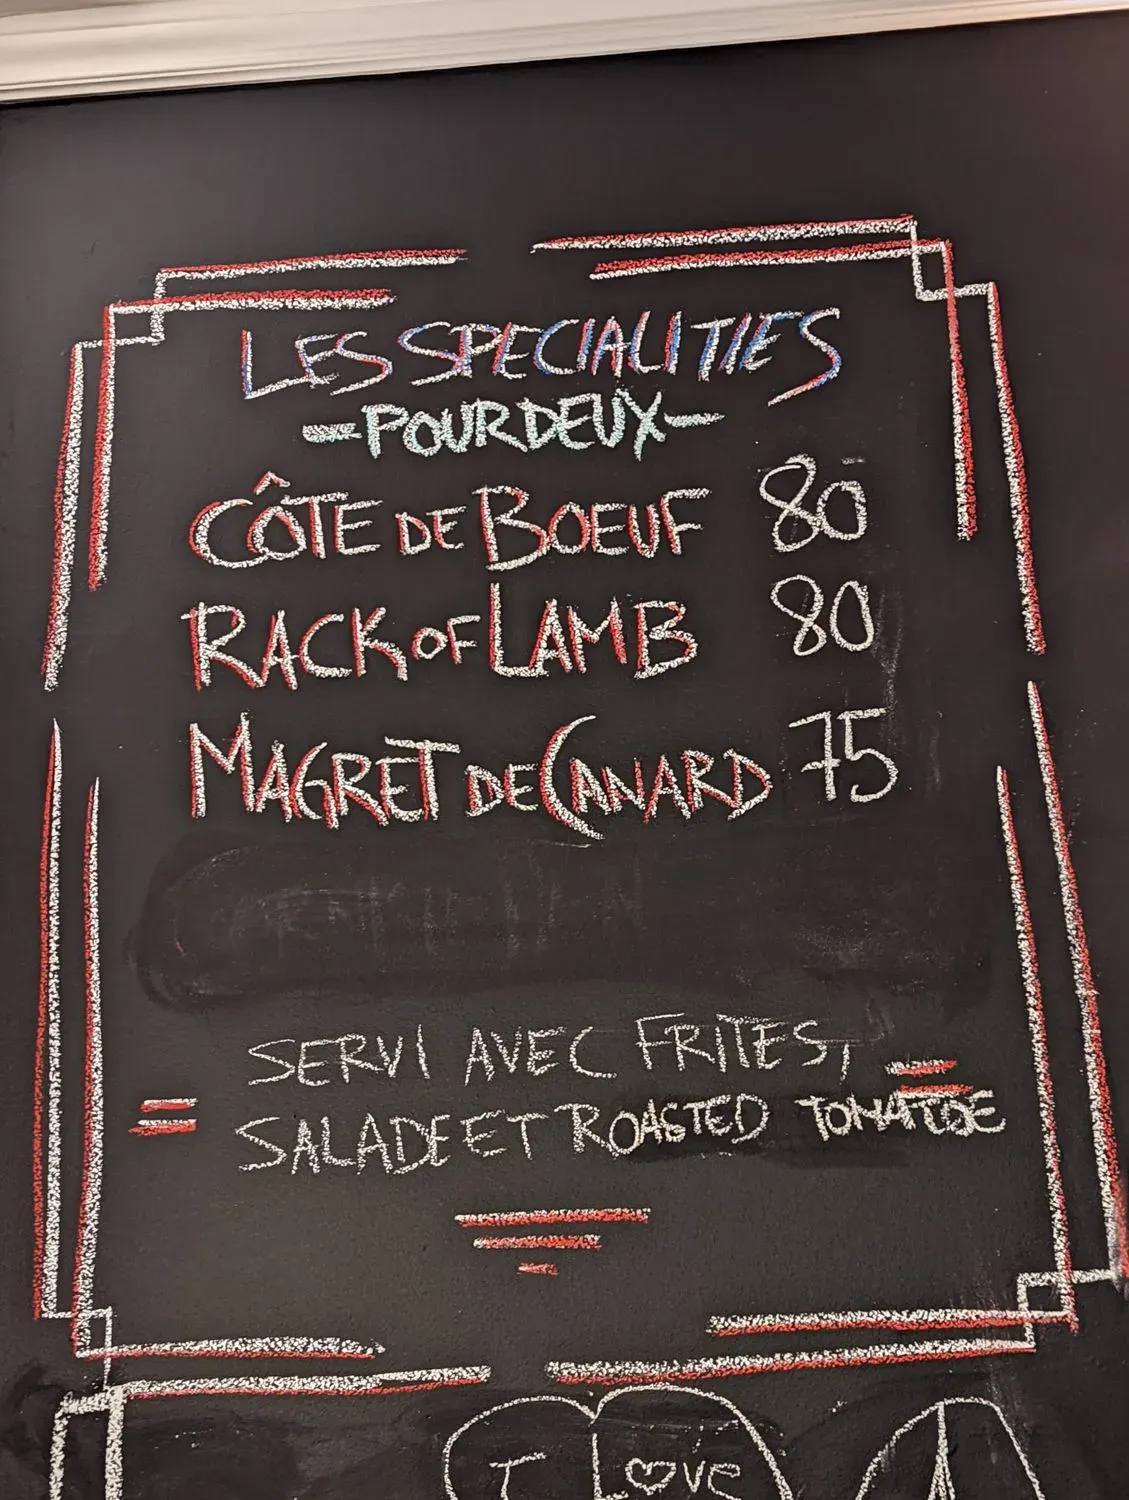 LES SPECIALITIES
-POUR DEUX-
CÔTE DE BOEUF 80
RACK OF LAMB 80
MAGRET DE CANARD 75
SERVI AVEC FRITES,
SALADE ET ROASTED
I LOVE